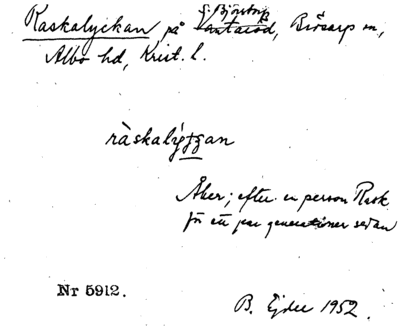 S. Björstorp
Raskalyckan på Vantaröd, Brösarp sn,
Albo hd, Krist. l.
ràskalýggan
Åker; efter en person Rask
för ett par generationer sedan
Nr 5912.
B. Ejder 1952.